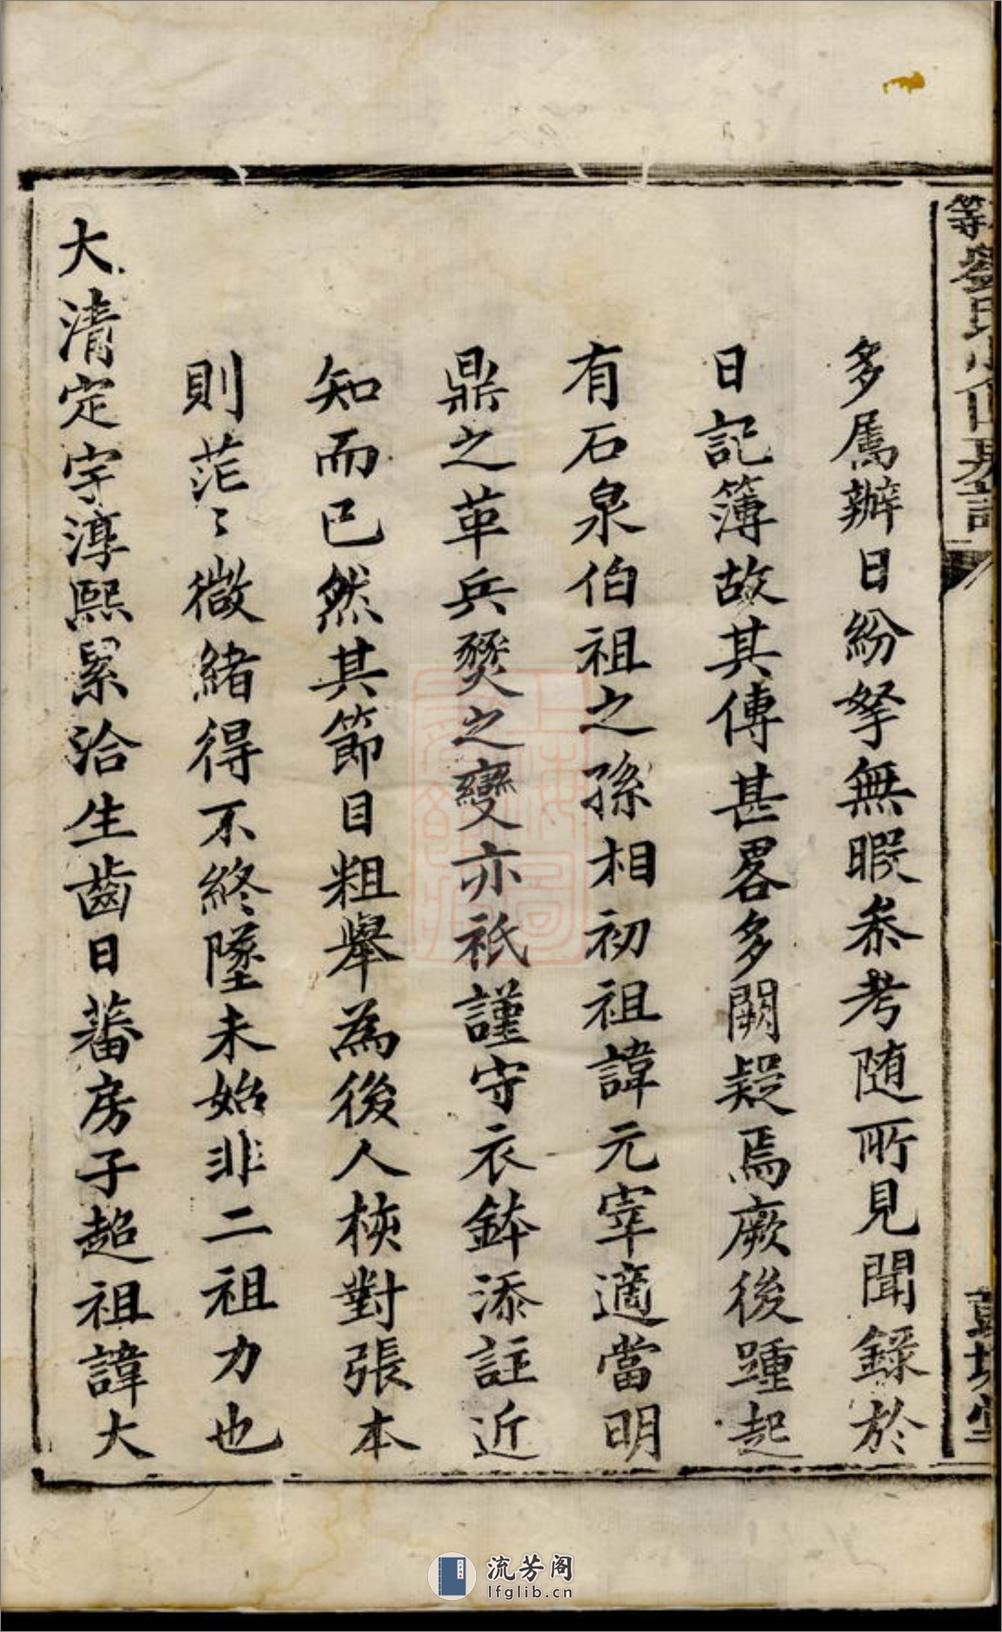 多屬辦日紛拏無暇叅考随所見聞錄於
日記簿故其傳甚畧多闕疑焉厥後踵起
有石泉伯祖之孫相初祖諱元宰適當明
鼎之革兵燹之變亦祇謹守衣鉢添註近
知而已然其節目粗舉為後人挍對張本
則茫〻微緒得不終墜未始非二祖力也
大清定宇淳熙累洽生齒日蕃房子超祖諱大
流芳阁
lfglib.cn